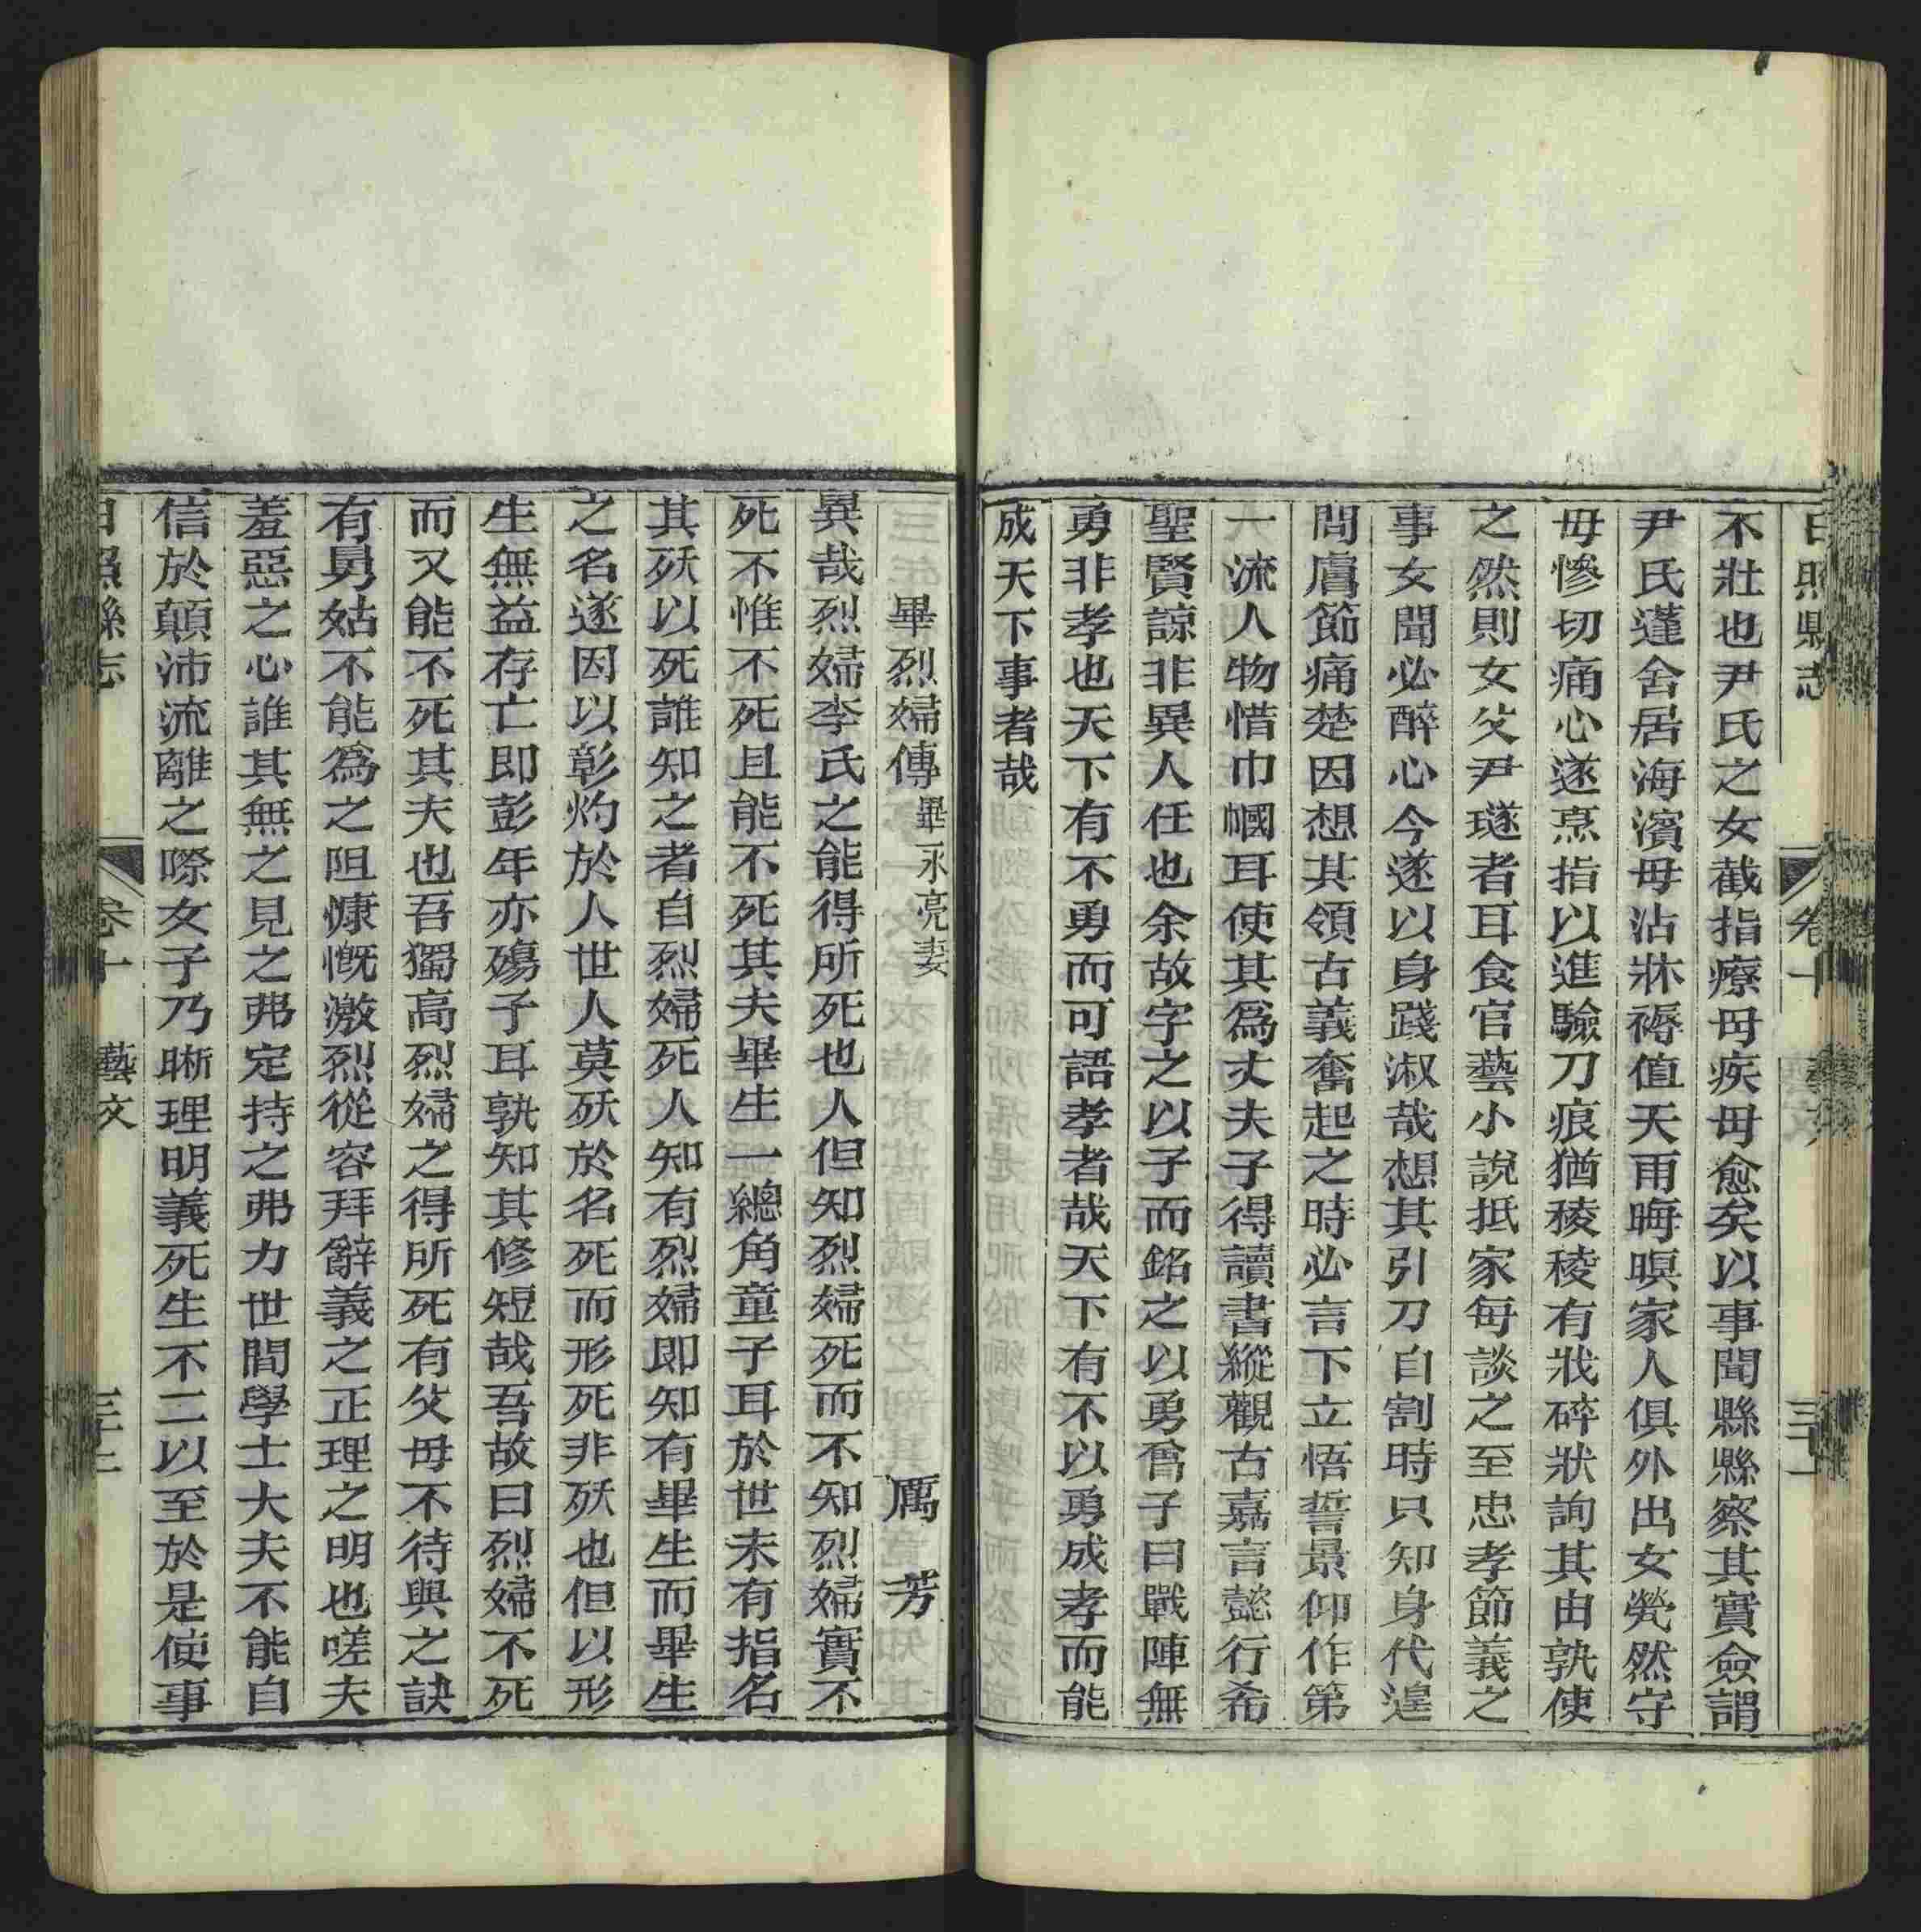 日照縣志 卷十 藝文 三十一
不壯也尹氏之女截指療母疾母愈矣以事聞縣縣察其實僉謂
尹氏蘧舍居海濱母沾牀褥值天雨晦暝家人俱外出女煢然守
母慘切痛心遂烹指以進驗刀痕猶稜稜有狀碎狀詢其由孰使
之然則女父尹璲者耳食官藝小說抵家每談之至忠孝節義之
事女聞必醉心今遂以身踐淑哉想其引刀自割時只知身代遑
問膚節痛楚因想其領古義奮起之時必言下立悟誓景仰作第
一流人物惜巾幗耳使其爲丈夫子得讀書縱觀古嘉言懿行希
聖賢諒非異人任也余故字之以子而銘之以勇曾子曰戰陣無
勇非孝也天下有不勇而可語孝者哉天下有不以勇成孝而能
成天下事者哉
畢烈婦傳 畢永亮妻 厲芳
異哉烈婦李氏之能得所死也人但知烈婦死而不知烈婦實不
死不惟不死且能不死其夫畢生一總角童子耳於世未有指名
其殀以死誰知之者自烈婦死人知有烈婦即知有畢生而畢生
之名遂因以彰灼於人世人莫殀於名死而形死非殀也但以形
生無益存亡即彭年亦殤子耳孰知其修短哉吾故曰烈婦不死
而又能不死其夫也吾獨高烈婦之得所死有父母不待與之訣
有舅姑不能爲之阻慷慨激烈從容拜辭義之正理之明也嗟夫
羞惡之心誰其無之見之弗定持之弗力世間學士大夫不能自
信於顛沛流離之際女子乃晰理明義死生不二以至於是使事
日照縣志 卷十 藝文